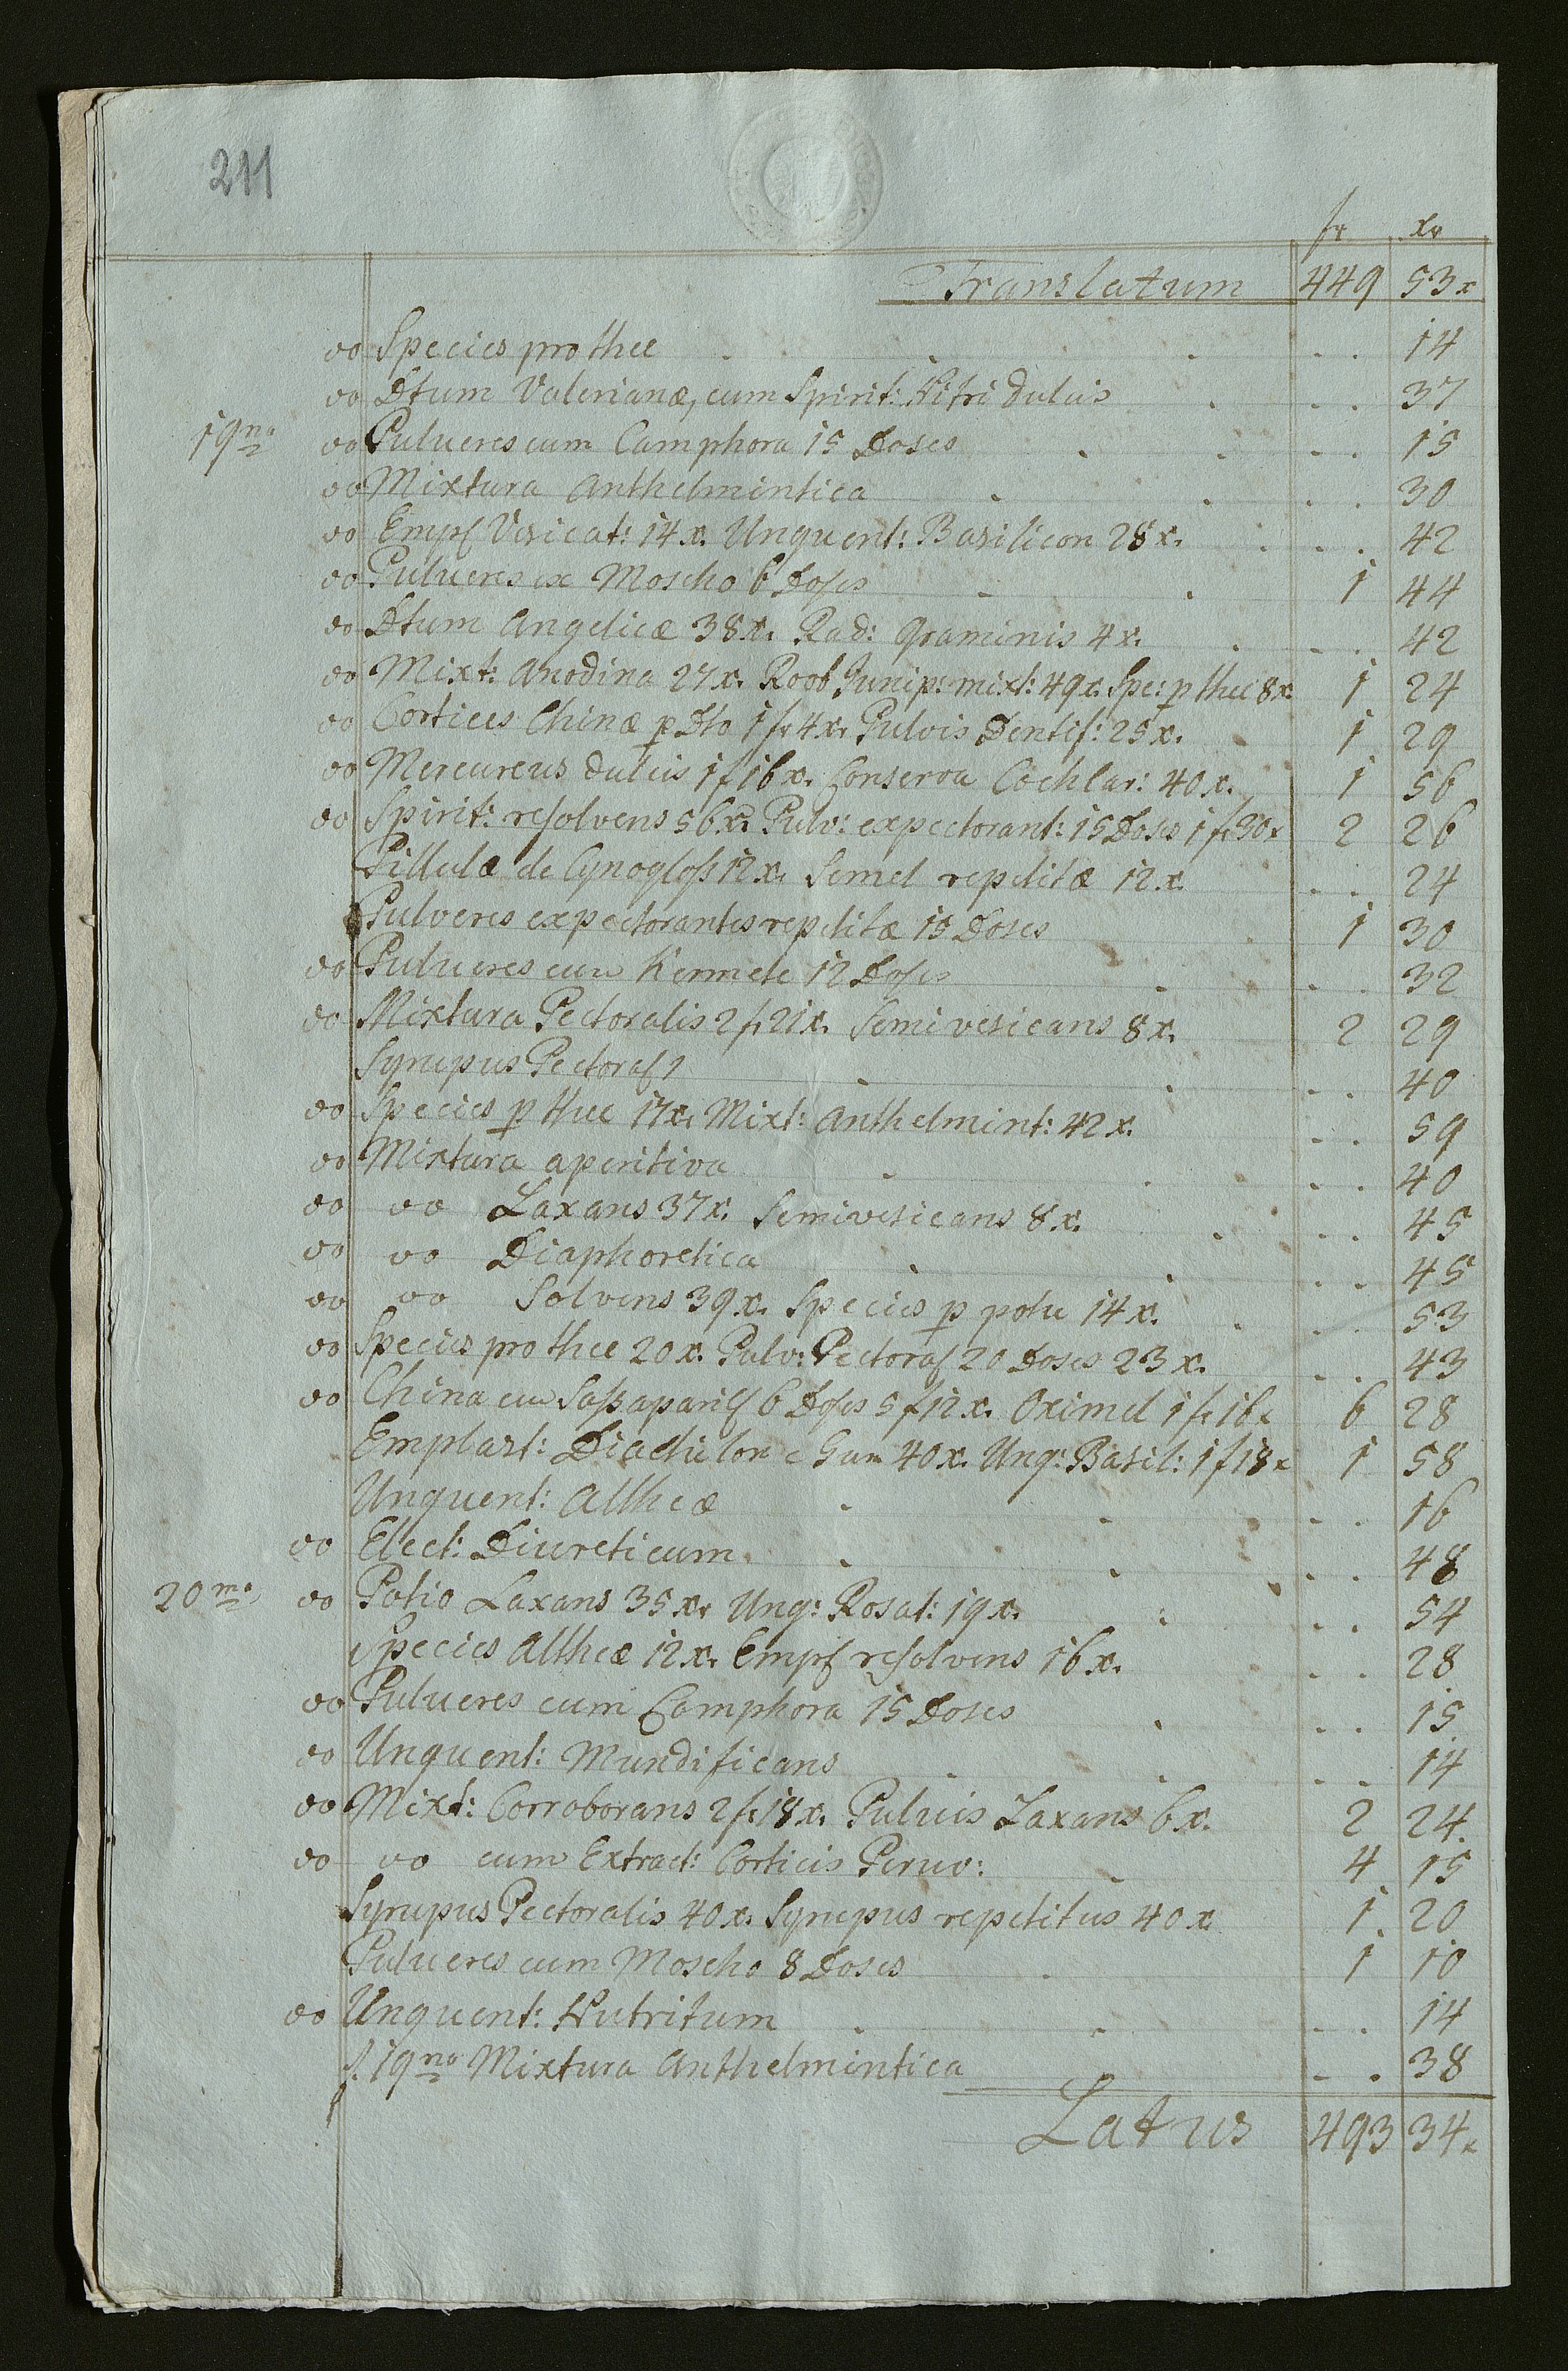 211
fr xr
Translatum 449 53x
oo Species pro thee . . . . . 14
oo Dtum Valerianæ, cum Spirit: Nitri dulcis . . . 37
19na oo Pulueres cum Camphora 15 Doses . . . . 15
oo Mixtura Anthelmintica . . . . 30
oo Empl Vesicat: 14x. Unguent: Basilicon 28x. . . . 42
oo Pulueres ex Moscho 6 Doses . . 1 44
oo Dtum Angelicæ 38x. Rad: Graminis 4x. . . . 42
oo Mixt: Anodina 27x. Roob Junip: mixt: 49x. Spe: p thee 8x 1 24
oo Cortices Chinæ p Dto 1 fr 4x. Pulvis Dentif: 25x. 1 29
oo Mercureus dulcis 1f 16x. Conserva Cochlar: 40x. 1 56
oo Spirit: resolvens 56x. Pulv: expectorant: 15 Doses 1 f 30x 2 26
Pillulæ de Cynogloss 12x. Semel repetitæ 12x . . 24
Pulveres expectorantes repetitæ 15 Doses 1 30
oo Pulueres cum Kermete 12 Doses . . . 32
oo Mixtura Pectoralis 2 f 21x. Semivesicans 8x. 2 29
Syrupus Pectoral . . . . 40
oo Species p thee 17x. Mixt: Anthelmint: 42x. . . 59
oo Mixtura aperitiva . . . . 40
oo oo Laxans 37x. Semivesicans 8x. . . . 45
oo oo Diaphoretica . . . . 45
oo oo Solvens 39x. Species p potu 14x. . . . 53
oo Species pro thee 20x. Pulv: Pectoral 20 Doses 23x. . . 43
oo China cum Sassaparil 6 Doses 5 f 12x. Oximel 1 fr 16x 6 28
Emplast: Diachilon c Gum 40x. Ung: Basil: 1 f 18x 1 58
Unguent: Altheæ . . . . 16
oo Elect: Diureticum . . . . 48
20ma oo Potio Laxans 35x. Ung: Rosat: 19x. . . . 54
Species Altheæ 12x. Empl resolvens 16x. . . 28
oo Pulueres cum Camphora 15 Doses . . . 15
oo Unguent: Mundificans . . . . 14
oo Mixt: Corroborans 2 f 18x. Puluis Laxans 6x. 2 24
oo oo cum Extract: Corticis Peruv: . 4 15
Syrupus Pectoralis 40x. Syrupus repetitus 40x 1 20
Pulueres cum Moscho 8 Doses . 1 10
oo Unguent: Nutritum . . . . 14
19na Mixtura Anthelmintica . . 38
Latus 493 34x